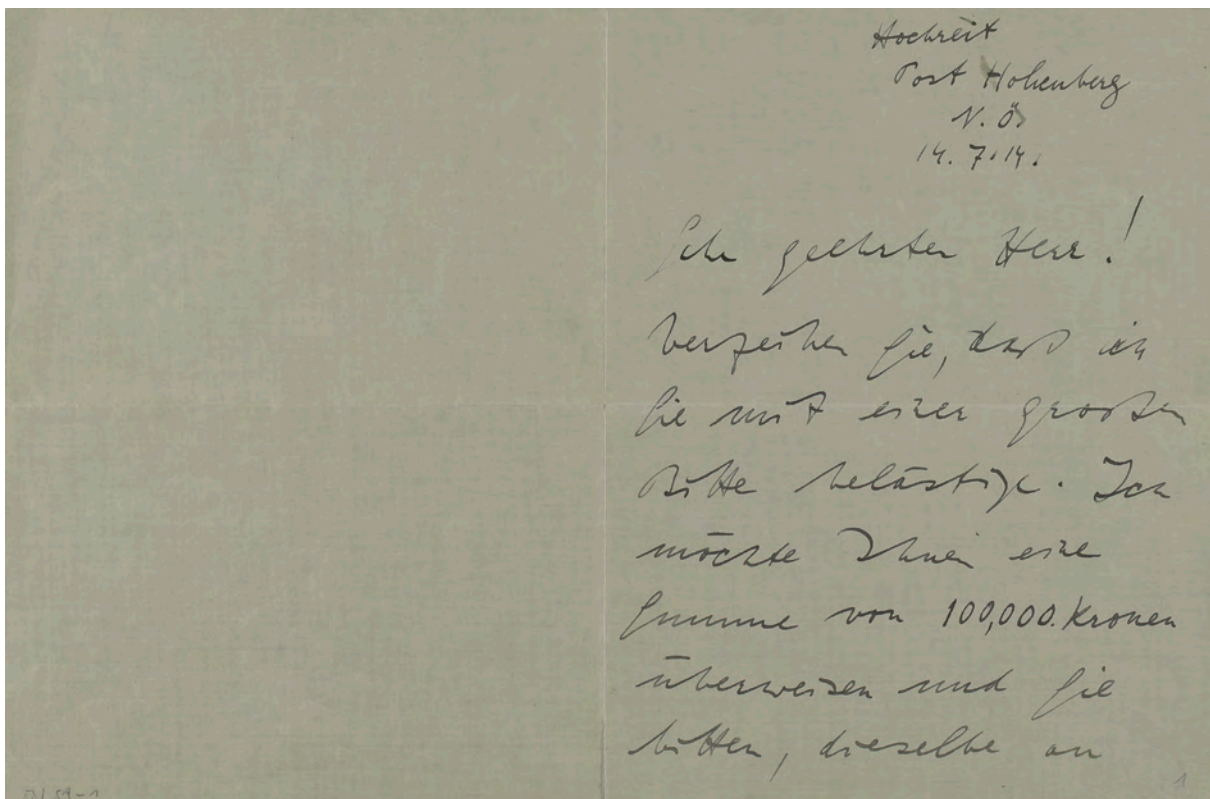 Hochreit
Post Hohenberg
N. Ö.
14. 7. 14.
Sehr geehrter Herr!
Verzeihen Sie, daß ich
Sie mit einer großen
Bitte belästige. Ich
möchte Ihnen eine
Summe von 100,000. Kronen
überweisen und Sie
bitten, dieselbe an
1